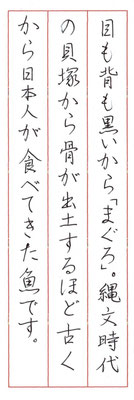 目も背も黒いから「まぐろ」。縄文時代
の貝塚から骨が出土するほど古く
から日本人が食べてきた魚です。